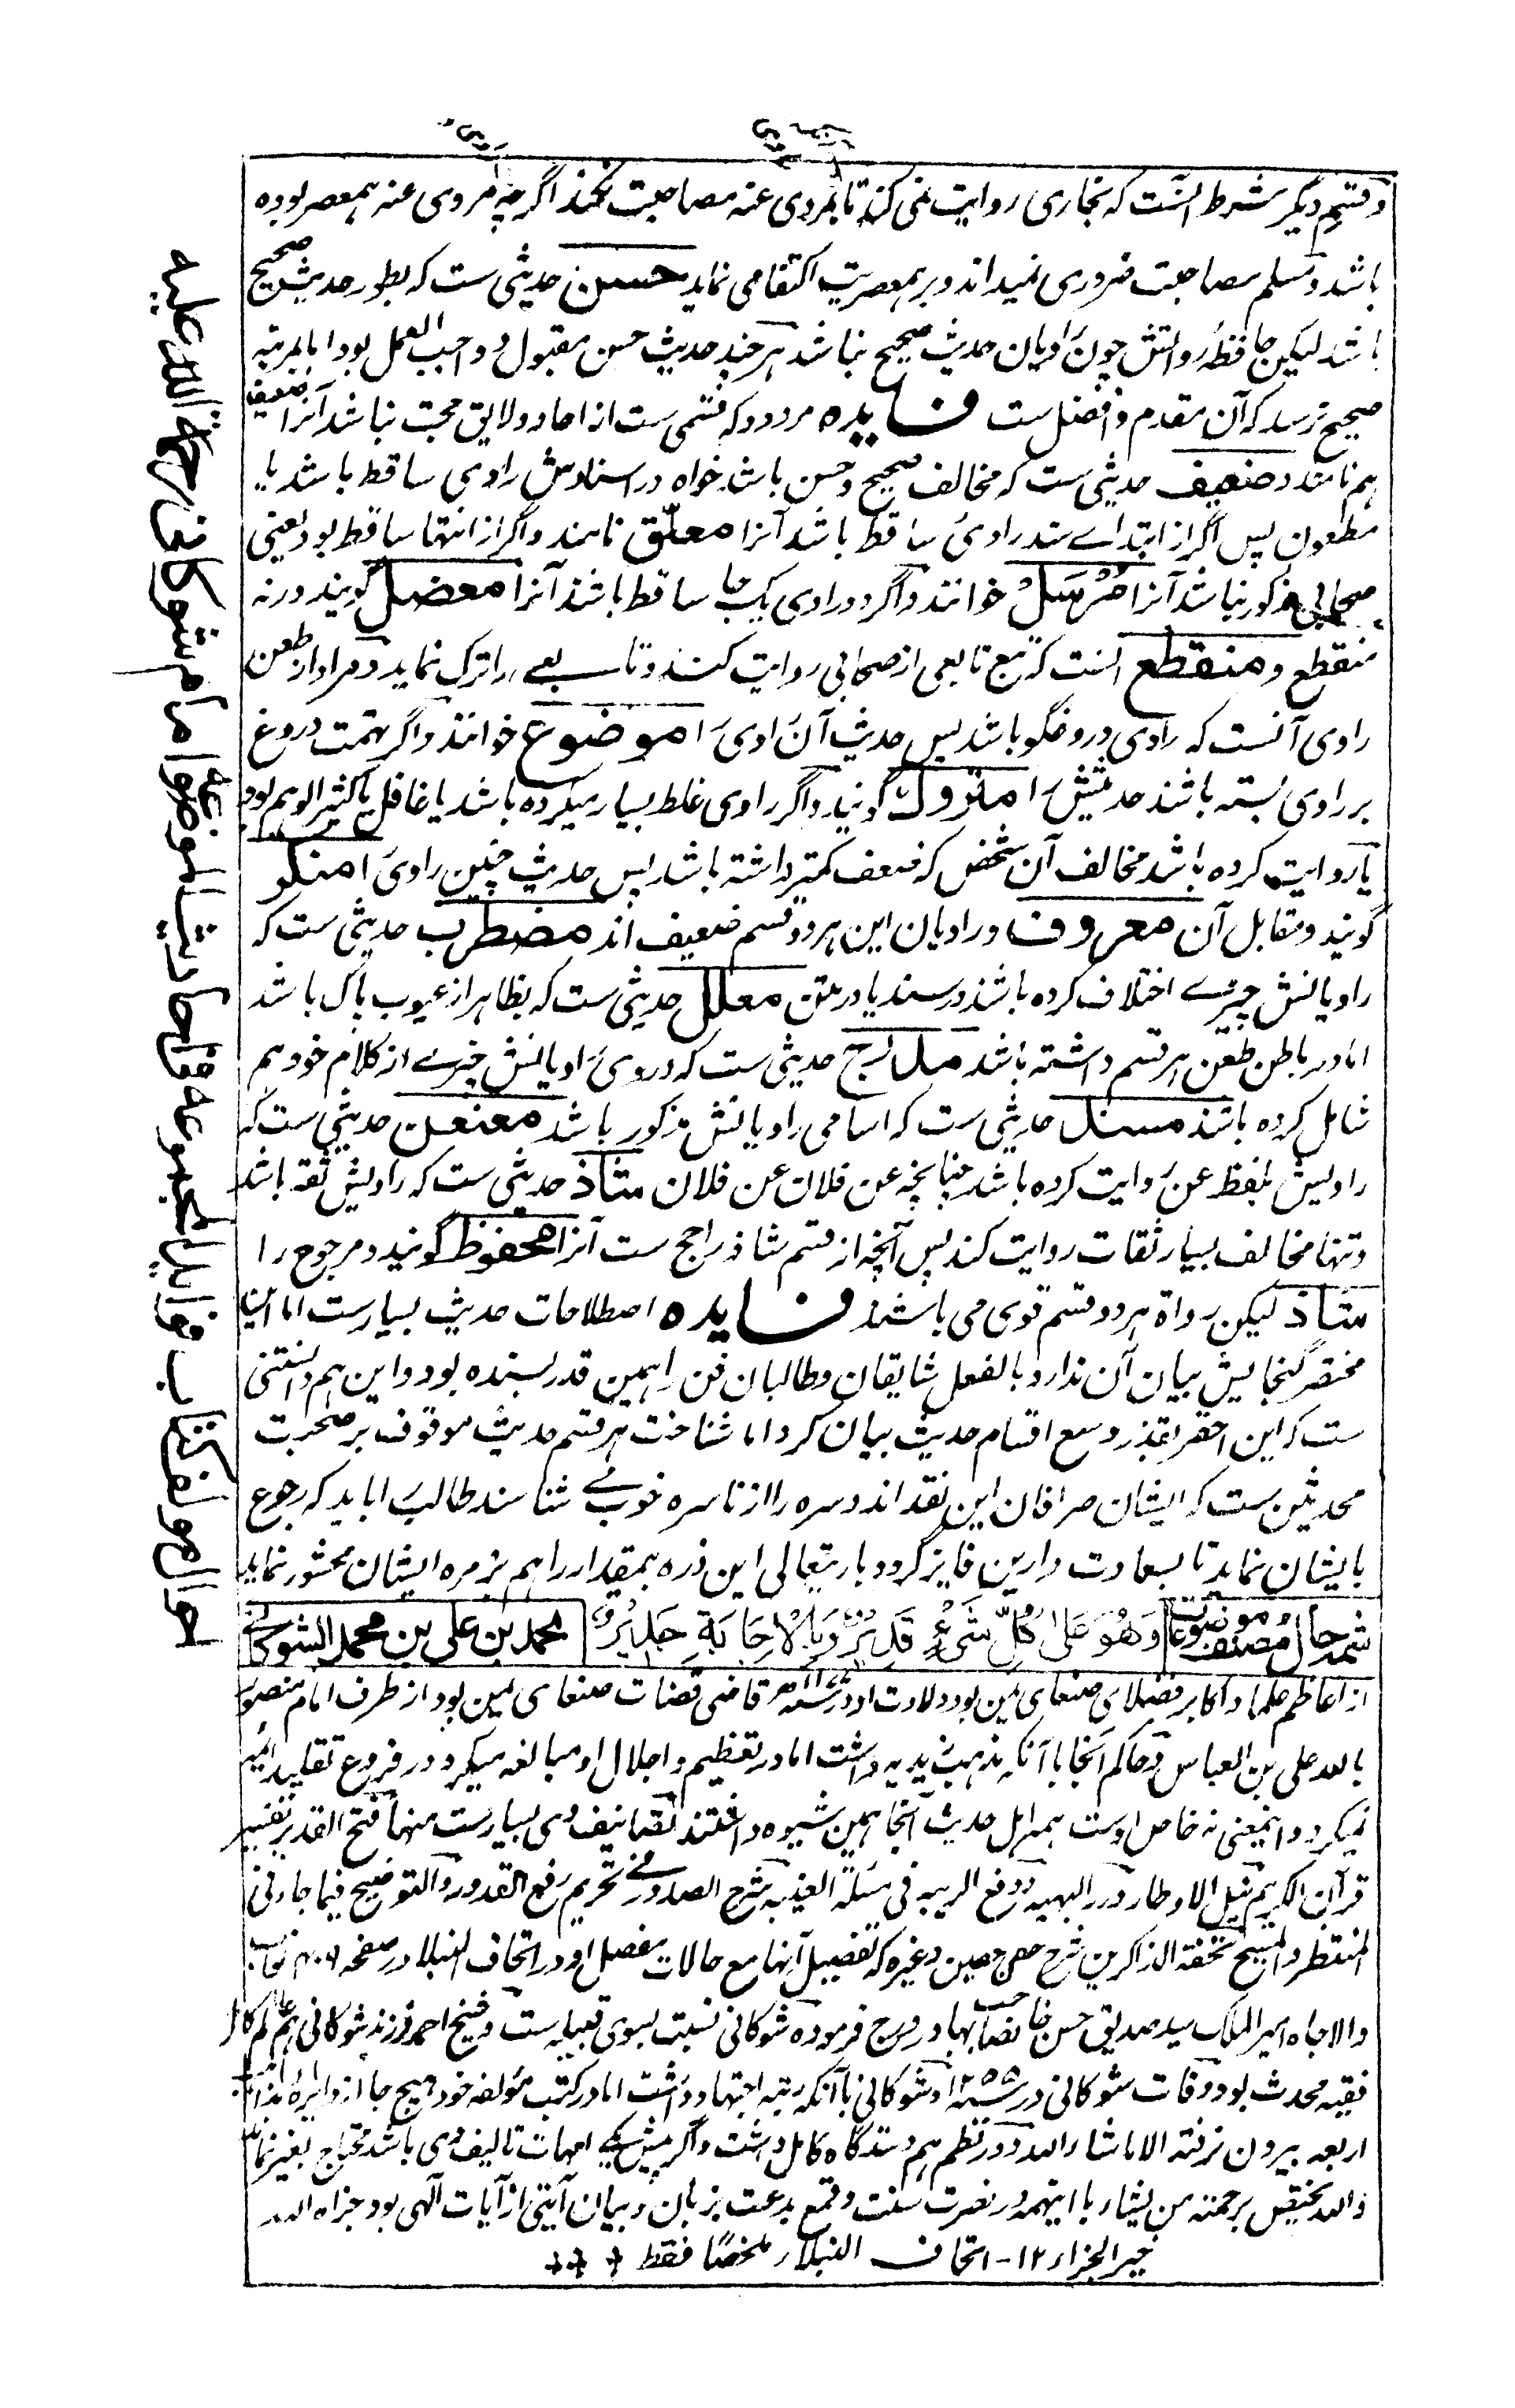 و قسم دیگر شرط آنست که بخاری روایت نمی کند تا بمروی عنه مصاحبت نکند اگرچه مروی عنه همعصر بوده
باشد و مسلم مصاحبت ضروری نمیداند و بر همعصریت اکتفا می نماید حسن حدیثی ست که بطور حدیث صحیح
باشد لیکن حافظه رواتش چون راویان حدیث صحیح نباشد هر چند حدیث حسن مقبول و واجب العمل بود اما بمرتبه
صحیح نرسد که آن مقدم و افضل ست فایده مردود که قسمی ست از احاد و لایق حجت نباشد آنرا ضعیف
هم نامند و ضعیف حدیثی ست که مخالف صحیح و حسن باشد خواه در اسنادش راوی ساقط باشد یا
مطعون پس اگر از ابتدای سند راوی ساقط باشد آنرا معلق نامند و اگر از انتها ساقط بود یعنی
صحابی مذکور نباشد آنرا مُرْسَلْ خوانند و اگر دو راوی یکجا ساقط باشند آنرا معضل گویند ورنه
منقطع و منقطع آنست که تبع تابعی از صحابی روایت کند و تابعی را ترک نماید و مراد از طعن
راوی آنست که راوی دروغگو باشد پس حدیث آن راوی را موضوع خوانند و اگر تهمت دروغ
بر راوی بسته باشند حدیثش را متروک گویند و اگر راوی غلط بسیار میکرده باشد یا غافل یا کثیر الوهم بود
یا روایت کرده باشد مخالف آن شخص که ضعف کمتر داشته باشد پس حدیث چنین راوی را منکر
گویند و مقابل آن معروف و راویان این هر دو قسم ضعیف اند مضطرب حدیثی ست که
راویانش چیزے اختلاف کرده باشند در سند یا در متن معلل حدیثی ست که بظاهر از عیوب پاک باشد
اما در باطن طعن هر قسم داشته باشد مدرج حدیثی ست که در وی راویانش چیزے از کلام خود هم
شامل کرده باشند مسند حدیثی ست که اسامی راویانش مذکور باشد معنعن حدیثی ست که
راویش بلفظ عن روایت کرده باشد چنانچه عن فلان عن فلان شاذ حدیثی ست که راویش ثقه باشد
و تنها مخالف بسیار ثقات روایت کند پس آنچه از قسم شاذ راجح ست آنرا محفوظ گویند و مرجوح را
شاذ لیکن رواة هر دو قسم قوی می باشند فایده اصطلاحات حدیث بسیارست اما این
مختصر گنجایش بیان آن ندارد بالفعل شایقان و طالبان فن را همین قدر بسنده بود و این هم دانستنی
ست که این احقر بقدر وسع اقسام حدیث بیان کرد اما شناخت هر قسم حدیث موقوف بر صحبت
محدثین ست که ایشان صرافان این نقد اند و سره را از ناسره خوب می شناسند طالب را باید که رجوع
بایشان نماید تا بسعادت دارین فایز گردد باریتعالی این ذره بیمقدار را هم بزمره ایشان محشور نماید
وَهُوَ عَلىٰ كُلِّ شَىْءٍ قَدِيْرٌ وَبِالْاِجَابَةِ جَدِيْرٌ شمه حال مصنف موضوعات محمد بن علی بن محمد الشوکانی
از اعاظم علما و اکابر فضلای صنعای یمن بود ولادت او در ۱۱۷۷ھ قاضی قضات صنعای یمن بود از طرف امام منصور
بالله علی بن العباس و حاکم آنجا با آنکه مذهب زیدیه داشت اما در تعظیم و اجلال او مبالغه میکرد در فروع تقلید ائمه
نمیکرد و اینمعنی نه خاص اوست همه اهل حدیث آنجا همین شیوه داشتند تصانیف وی بسیارست منها فتح القدیر تفسیر
قرآن الکریم نیل الاوطار درر البهیه و دفع الریبه فی مسئلة الغیبه شرح الصدور فی تحریم رفع القدور و التوضیح فیما جاء فی
المنتظر و المسیح تحفة الذاکرین شرح حصن حصین و غیره که تفصیل آنها مع حالات مفصل او در اتحاف النبلا در صفحه ۴۰۷ نواب
والاجاه امیر الملک سید صدیق حسن خانصاحب بهادر درج فرموده شوکانی نسبت بسوی قبیله ست و شیخ احمد فرزند شوکانی هم عالم کامل
فقیه محدث بود و وفات شوکانی در ۱۲۵۵ و شوکانی با آنکه رتبه اجتهاد داشت اما در کتب مؤلفه خود هیچ جا از دایره مذاهب
اربعه بیرون نرفته الا ماشاء الله و در نظم هم دستگاه کامل داشت و اگر پیش کسے امهات تالیف وی باشد محتاج بغیر نماند
والله یختص برحمته من یشاء با اینهمه در نصرت سنت و قمع بدعت بزبان و بیان آیتی از آیات الهی بود جزاه الله
خیر الجزاء ۱۲ - اتحاف النبلاء ملخصًا فقط
احوال مولف کتاب فواید المجموعه فی احادیث الموضوعه امام شوکانی رحمة الله علیه